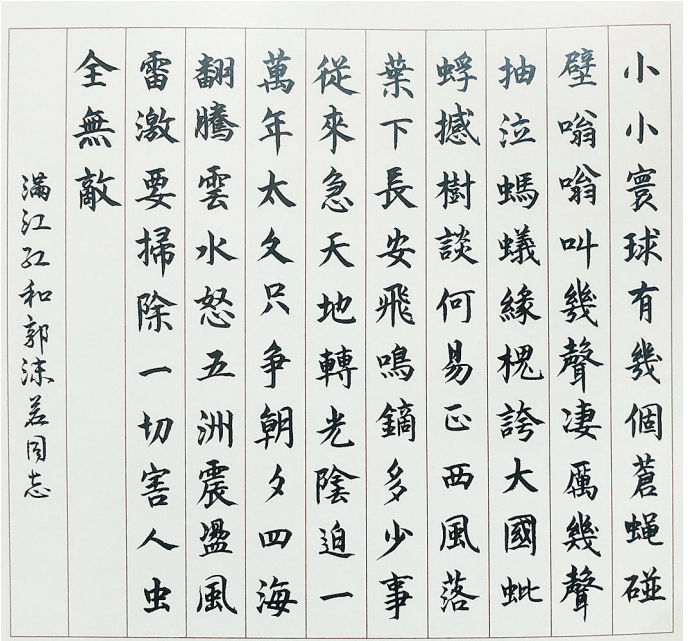 小小寰球有幾個蒼蝇碰
壁嗡嗡叫幾聲凄厲幾聲
抽泣螞蟻緣槐誇大國蚍
蜉撼樹談何易正西風落
葉下長安飛鳴鏑多少事
從來急天地轉光陰迫一
萬年太久只争朝夕四海
翻騰雲水怒五洲震盪風
雷激要掃除一切害人虫
全無敵
满江红和郭沫若同志